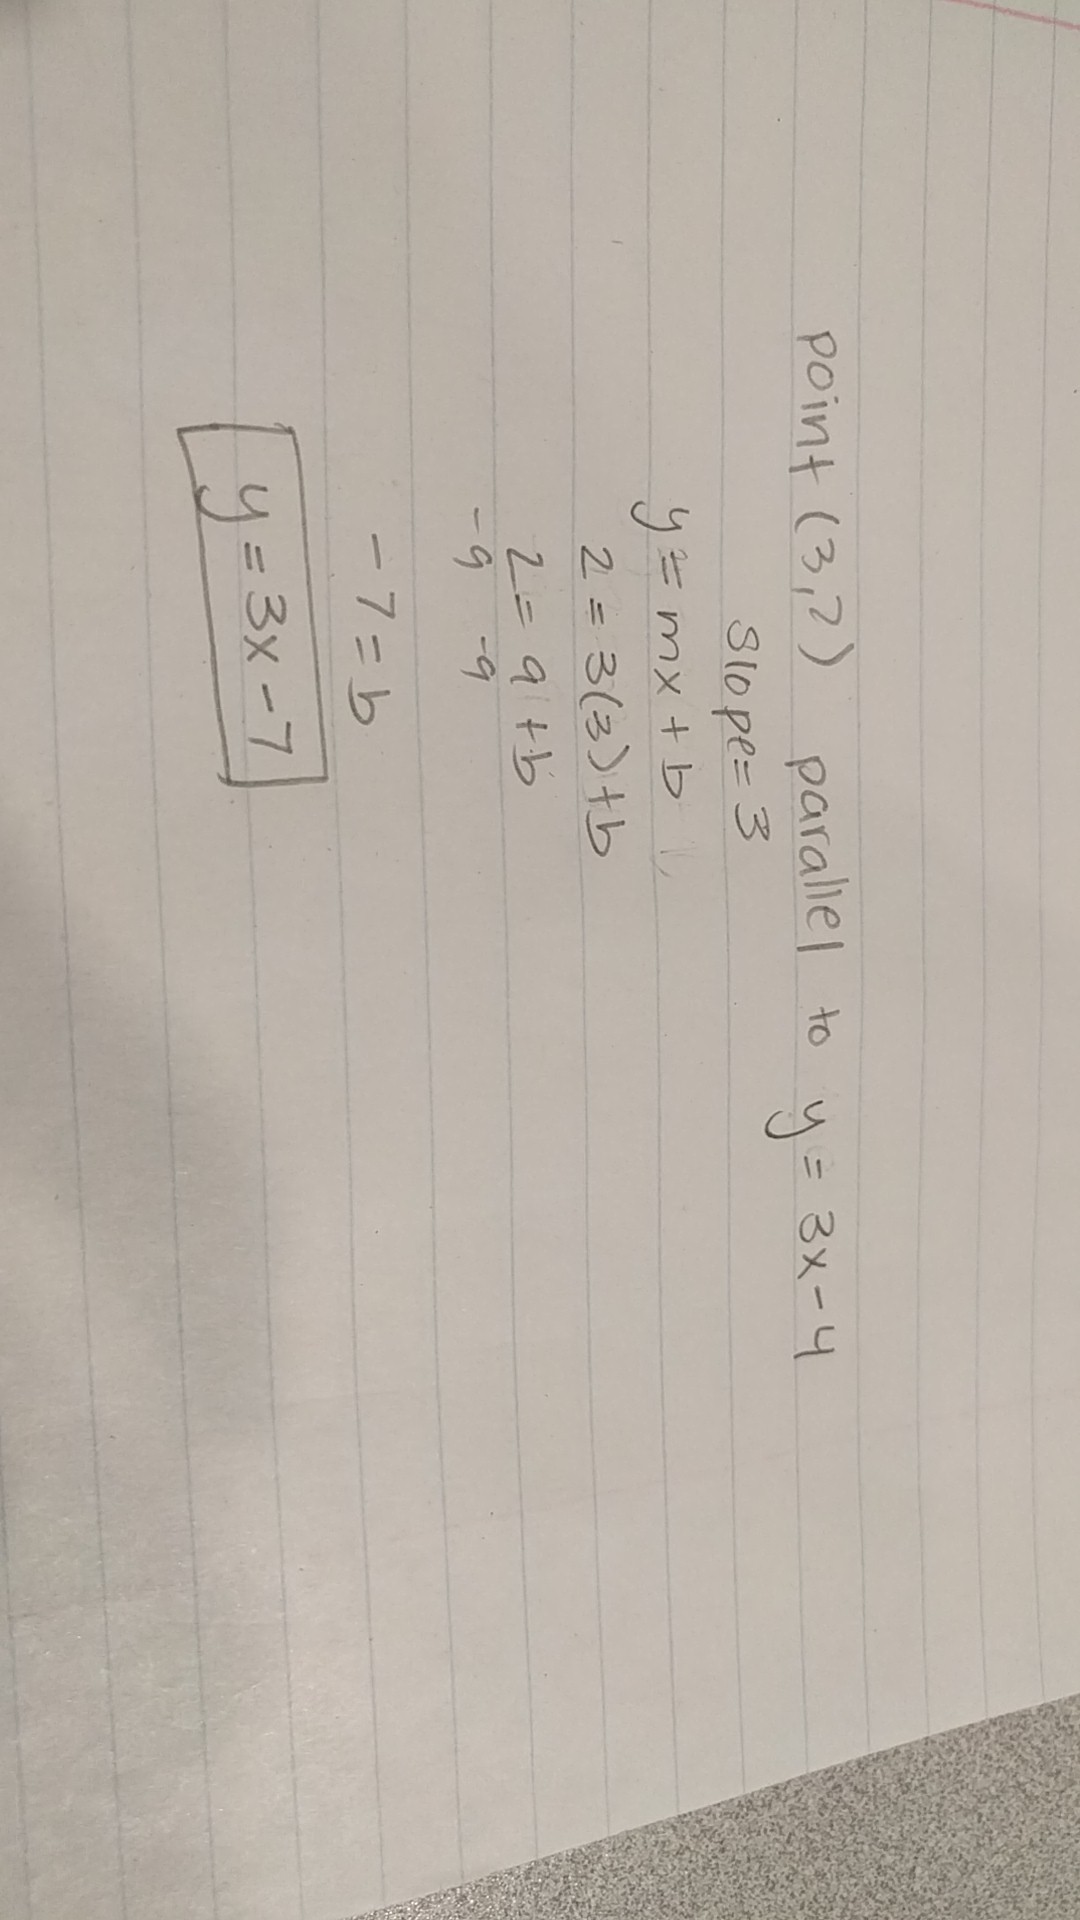 point (3,2) parallel to y = 3x - 4
slope = 3
y = mx + b
2 = 3(3) + b
2 = 9 + b
-9 -9
-7 = b
y = 3x - 7